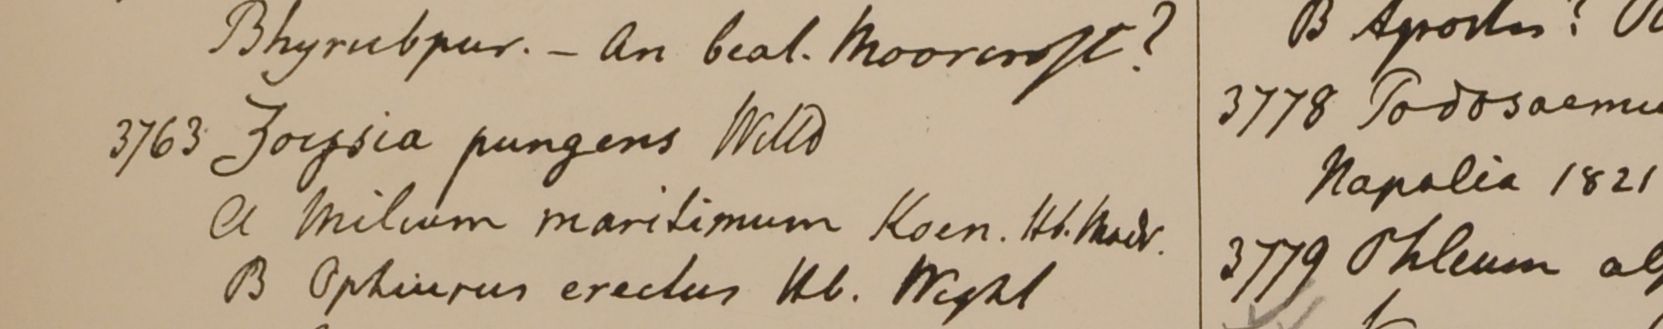 Bhyrubpur. – An beal. Moorcroft?
3763 Zoysia pungens Willd
A Milium maritimum Koen. Hb. Madr.
B Ophiurus erectus Hb. Wight
B Agrostis?
3778
Napalia 1821
3779 Phleum